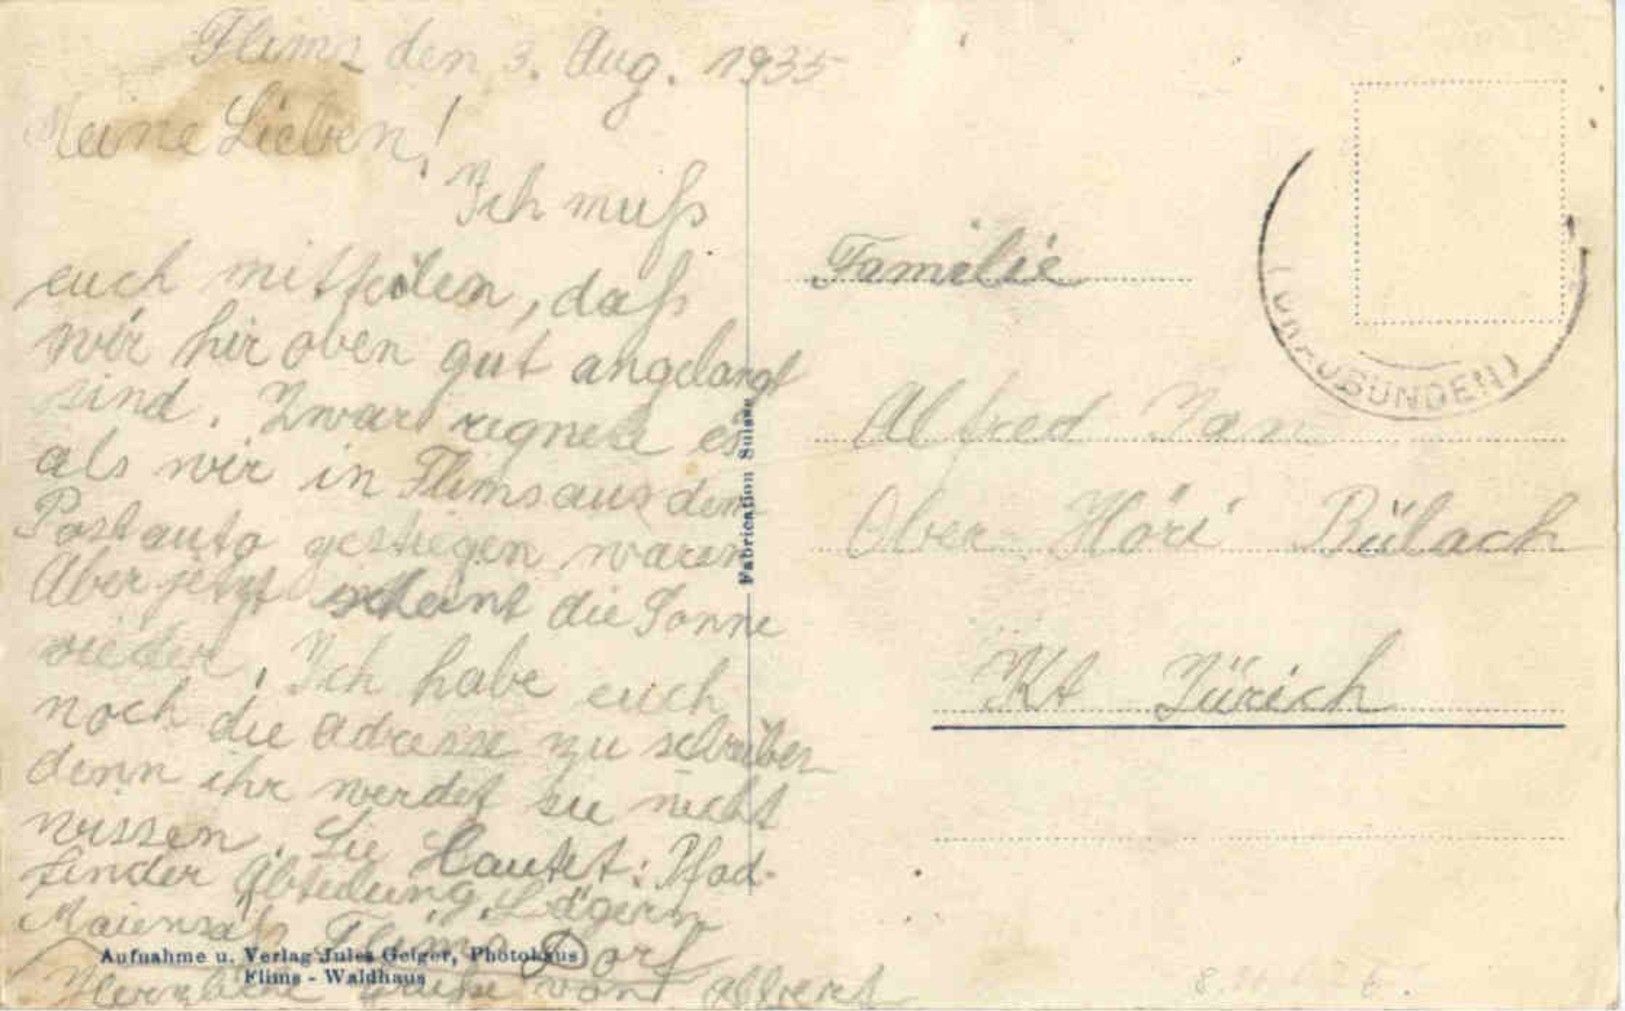 Flims den 3. Aug. 1935
Meine Lieben!
Ich muß
euch mitteilen, daß
wir hir oben gut angelangt
sind. Zwar regnete es
als wir in Flims aus dem
Postauto gestiegen waren
Aber jetzt scheint die Sonne
wieder. Ich habe euch
noch die Adresse zu schreiben
denn ihr werdet sie nicht
wissen. Sie Lautet: Pfad-
finder Abteilung Lägern
Maiensäss Flims Dorf
Herzliche Grüße von Albert
Aufnahme u. Verlag Jules Geiger, Photohaus
Flims - Waldhaus
Fabrication Suisse
Familie
Alfred Jan
Ober-Höri Bülach
Kt Zürich
(GRAUBÜNDEN)